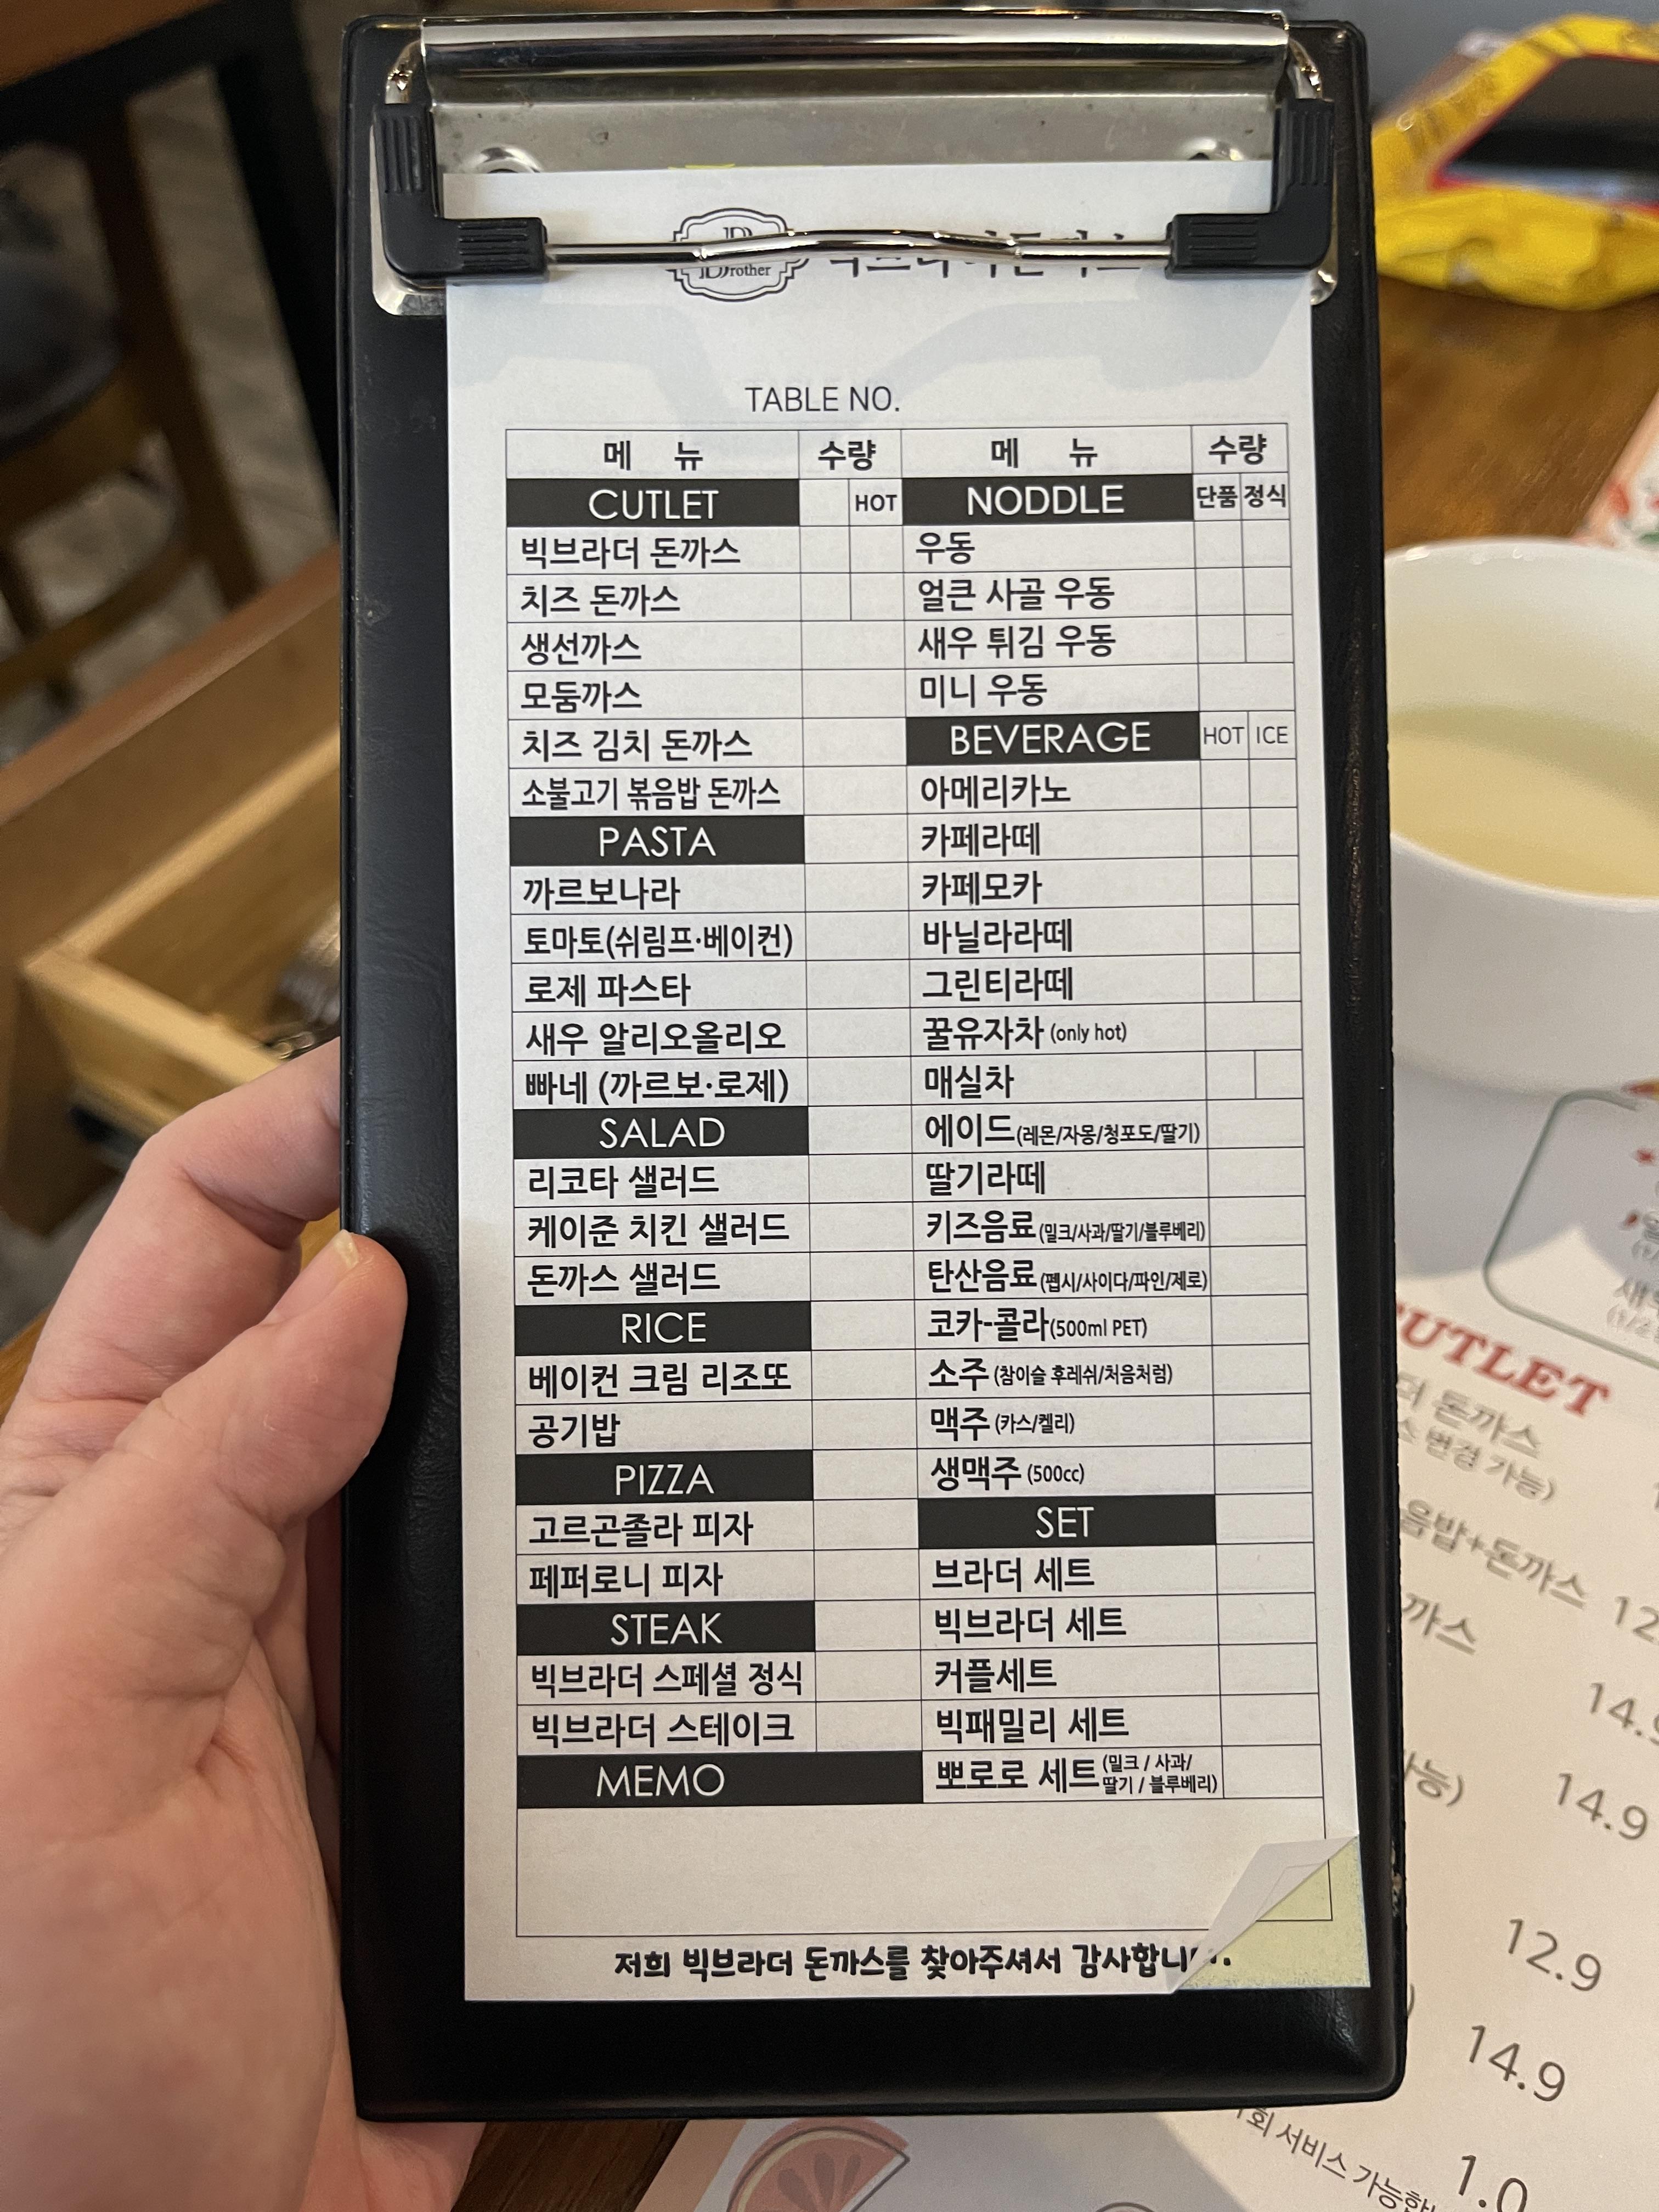 Brother
TABLE NO.
메 뉴 수량
CUTLET HOT
빅브라더 돈까스
치즈 돈까스
생선까스
모둠까스
치즈 김치 돈까스
소불고기 볶음밥 돈까스
PASTA
까르보나라
토마토(쉬림프·베이컨)
로제 파스타
새우 알리오올리오
빠네 (까르보·로제)
SALAD
리코타 샐러드
케이준 치킨 샐러드
돈까스 샐러드
RICE
베이컨 크림 리조또
공기밥
PIZZA
고르곤졸라 피자
페퍼로니 피자
STEAK
빅브라더 스페셜 정식
빅브라더 스테이크
MEMO
메 뉴 수량
NODDLE 단품 정식
우동
얼큰 사골 우동
새우 튀김 우동
미니 우동
BEVERAGE HOT ICE
아메리카노
카페라떼
카페모카
바닐라라떼
그린티라떼
꿀유자차 (only hot)
매실차
에이드(레몬/자몽/청포도/딸기)
딸기라떼
키즈음료(밀크/사과/딸기/블루베리)
탄산음료(펩시/사이다/파인/제로)
코카-콜라(500ml PET)
소주 (참이슬 후레쉬/처음처럼)
맥주 (카스/켈리)
생맥주 (500cc)
SET
브라더 세트
빅브라더 세트
커플세트
빅패밀리 세트
뽀로로 세트 (밀크 / 사과/
딸기 / 블루베리)
저희 빅브라더 돈까스를 찾아주셔서
CUTLET
돈까스
변경 가능)
음밥+돈까스
까스
14.9
12.9
14.9
1.0
서비스